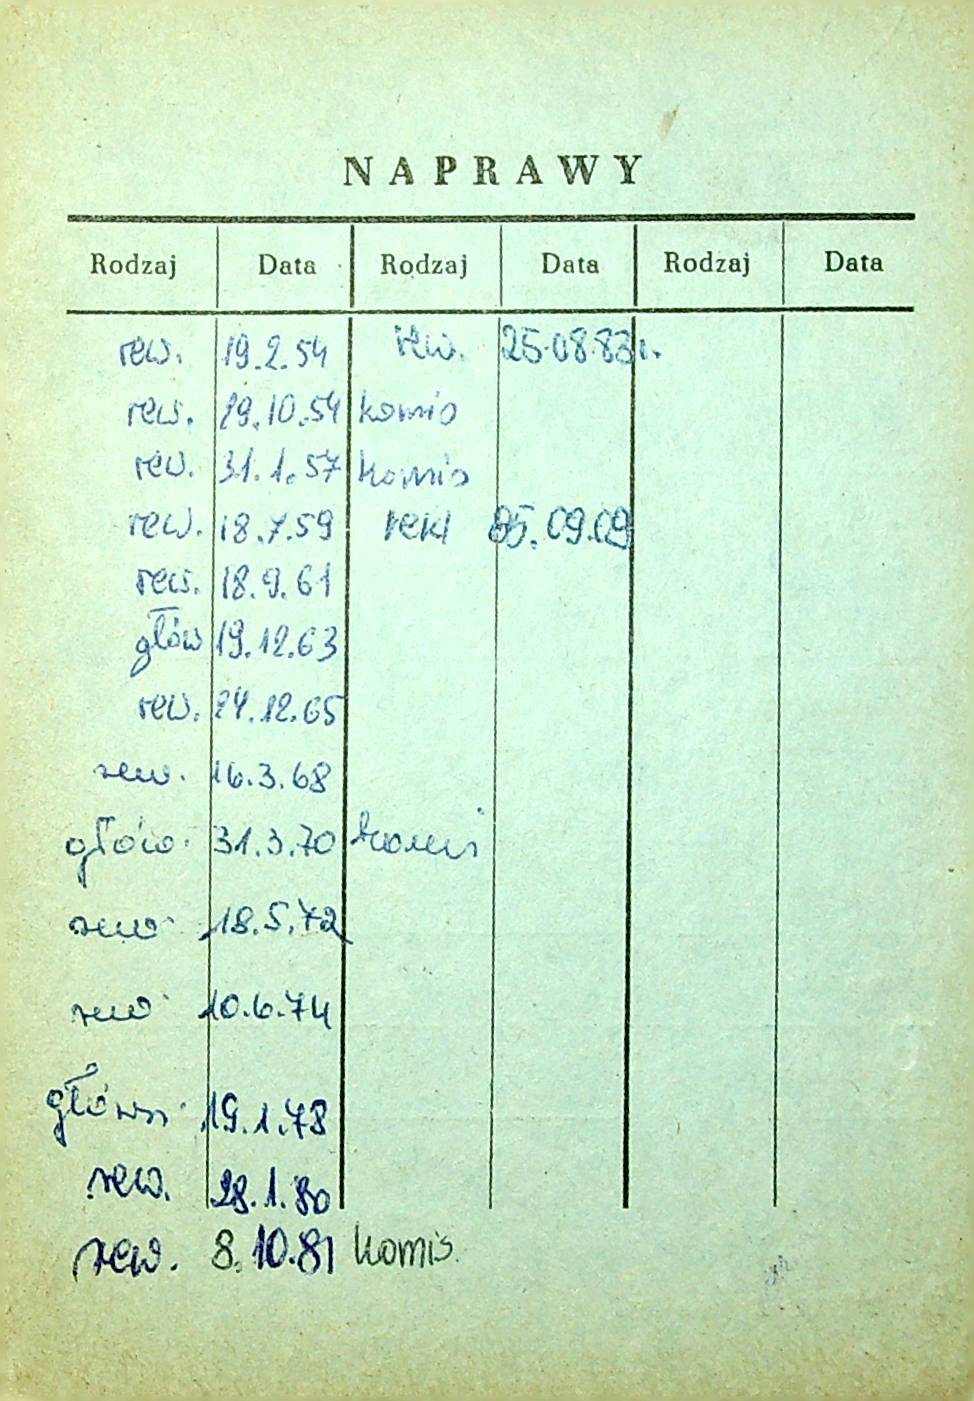 NAPRAWY
Rodzaj Data Rodzaj Data Rodzaj Data
rew. 19.2.54 rew. 25.08.83r.
rew. 29.10.54 komis
rew. 31.1.57 komis
rew. 18.7.59 rekl 05.09.09
rew. 18.9.61
głów 19.12.63
rew. 24.12.65
rew. 16.3.68
głów. 31.3.70 komis
rew. 18.5.72
rew. 10.6.74
główn. 19.1.78
rew. 28.1.80
rew. 8.10.81 komis.